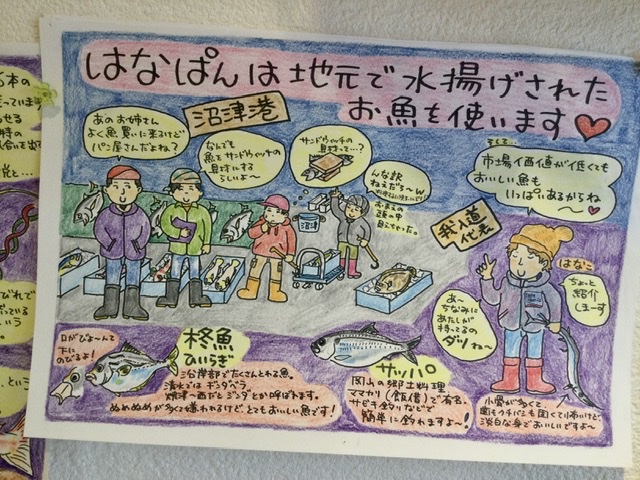 はなぱんは地元で水揚げされた
お魚を使います
沼津港
あのお姉さん
よく魚買いに来るけど
パン屋さんだよね?
なんでも
魚をサンドウィッチの
具材にする
らしいよ〜
サンドウィッチの
具材って…?
んな訳
ねえだら〜w
おまえの
頭の中
見えちゃった
沼津
そして…
市場価値が低くても
おいしい魚も
いっぱいあるからね
〜
我入道
代表
はなこ
ちょっと
紹介
しまーす
あ〜
ちなみに
あたしが
持ってるの
ダツね〜
口がびょ〜んて
下に
のびるよ!
柊魚
ひいらぎ
沿岸部でたくさんとれる魚。
浜松ではギンタベラ
焼津〜西だとジンダとか呼ばれます。
ぬめぬめが多くて嫌われるけど、とてもおいしい魚です!
サッパ
岡山の郷土料理
ママカリ(飯借)で有名。
サビキ釣りなどで
簡単に釣れますよ〜!
小骨が多くて
歯もクチバシも固くて川布いけど
淡白な身でおいしいですよ〜
6本の
っています